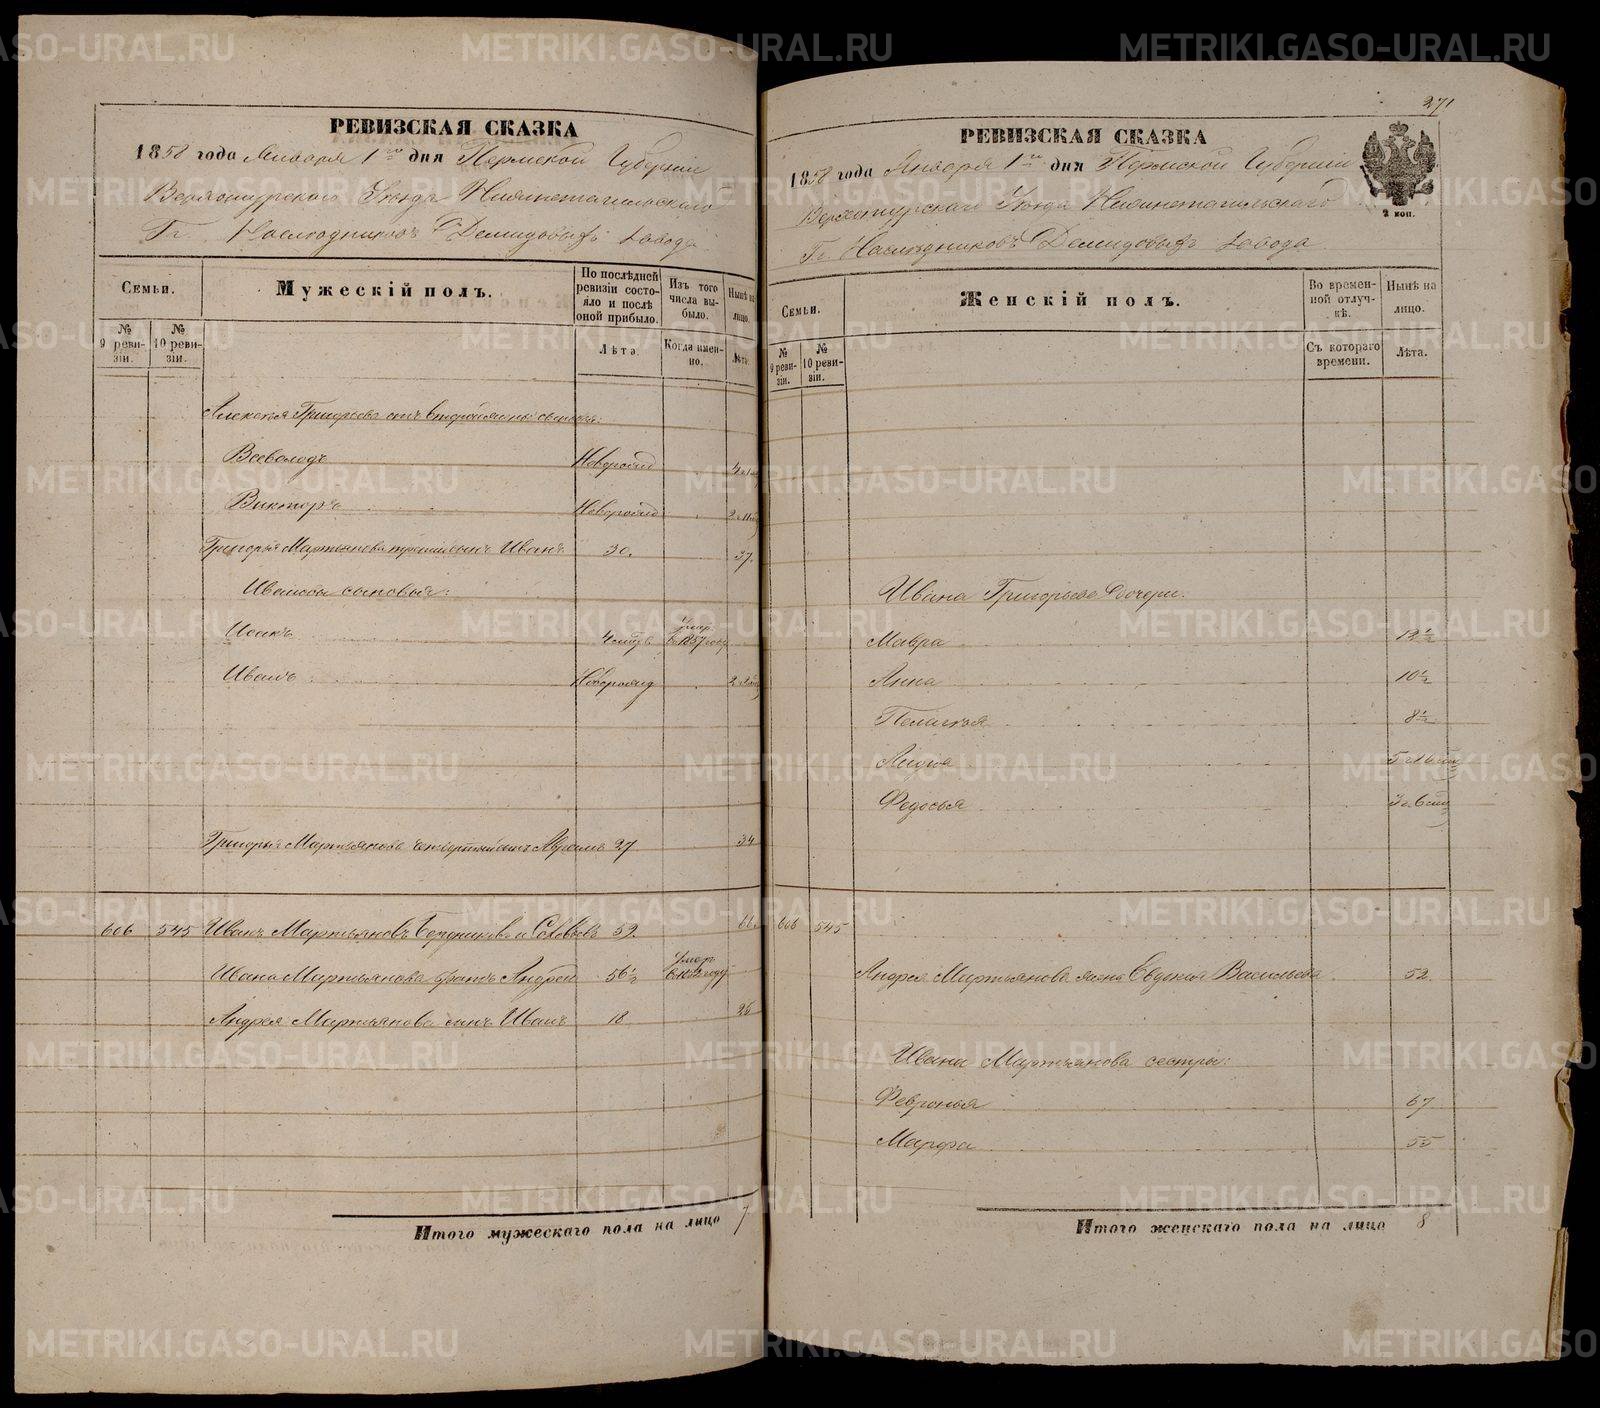 РЕВИЗСКАЯ СКАЗКА
1858 года Января 1го дня Пермской Губернiи
Верхотурскаго Уѣзда Нижнетагильскаго
Гг. Наслѣдниковъ Демидовыхъ завода
Семьи.
Мужескiй полъ.
По послѣдней ревизiи состояло и послѣ оной прибыло.
Изъ того числа выбыло.
Нынѣ на лицо.
№ 9 ревизiи.
№ 10 ревизiи.
Лѣта.
Когда именно.
Лѣта.
Алексѣя Григорьева отъ второй жены сыновья:
Всеволодъ Новорожд
Викторъ Новорожд
Григорья Мартьянова третiй сынъ Иванъ 30. 37.
Ивановы сыновья:
Исакъ Умер. в 1857 году
Иванъ Новорожд
Григорья Мартьянова четвертый сынъ 27 34
606 545 Иванъ Мартьяновъ 59. 66.
Ивана Мартьянова братъ Андрей 56½ Умер
Андрея Мартьянова сынъ Иванъ 18 26
Итого мужескаго пола на лицо 7
271
РЕВИЗСКАЯ СКАЗКА
1858 года Января 1го дня Пермской Губернiи
Верхотурскаго Уѣзда Нижнетагильскаго
Гг. Наслѣдниковъ Демидовыхъ завода
2 коп.
Семьи.
Женскiй полъ.
Во временной отлучкѣ.
Нынѣ на лицо.
№ 9 ревизiи.
№ 10 ревизiи.
Съ котораго времени.
Лѣта.
Ивана Григорьева дочери:
Мавра 12½
Анна 10½
Пелагѣя 8½
Лидiя
Федосья
606 545
Андрея Мартьянова жена Евдокiя Васильева 52.
Ивана Мартьянова сестры:
Февронья 67
Марфа 55
Итого женскаго пола на лицо 8
METRIKI.GASO-URAL.RU